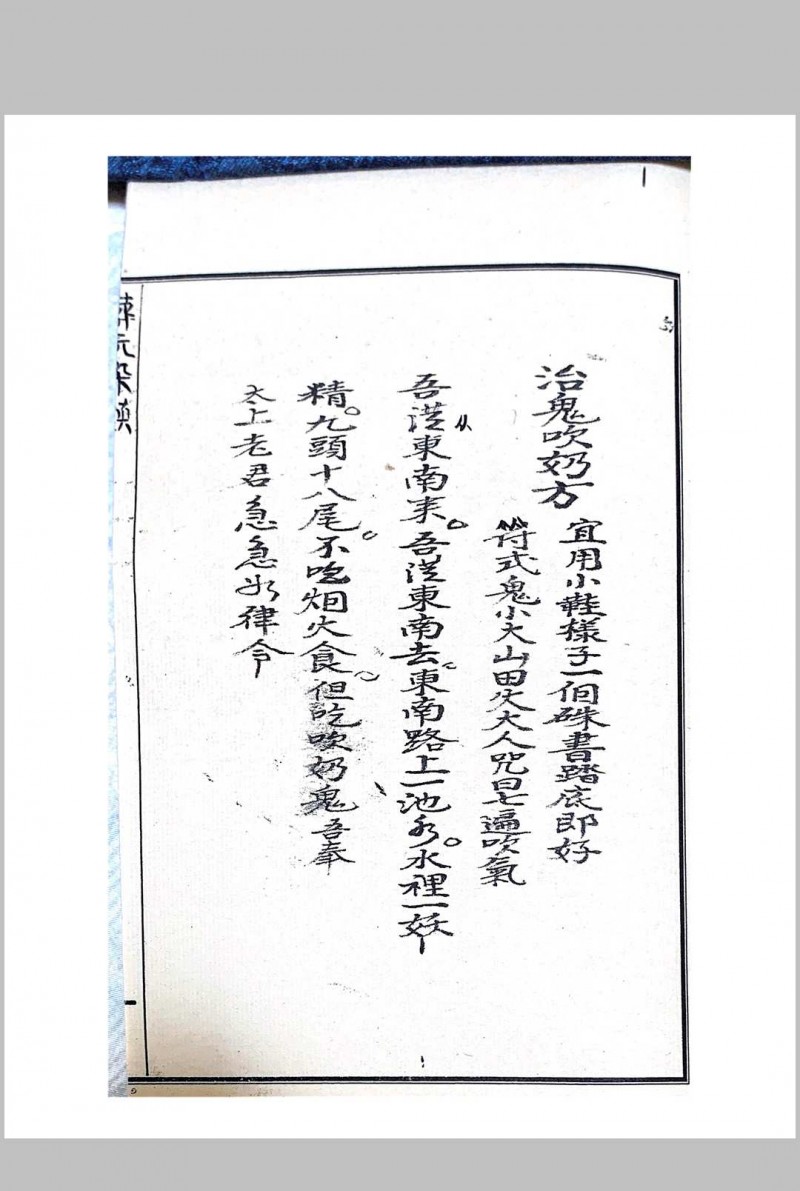 治鬼吹奶方
宜用小鞋樣子一個硃書踏底即好
符式鬼小大山田火大人咒曰七遍吹氣
吾從東南来。吾從東南去。東南路上一池水。水裡一妖
精。九頭十八尾。不吃烟火食。但吃吹奶鬼吾奉
太上老君急急如律令